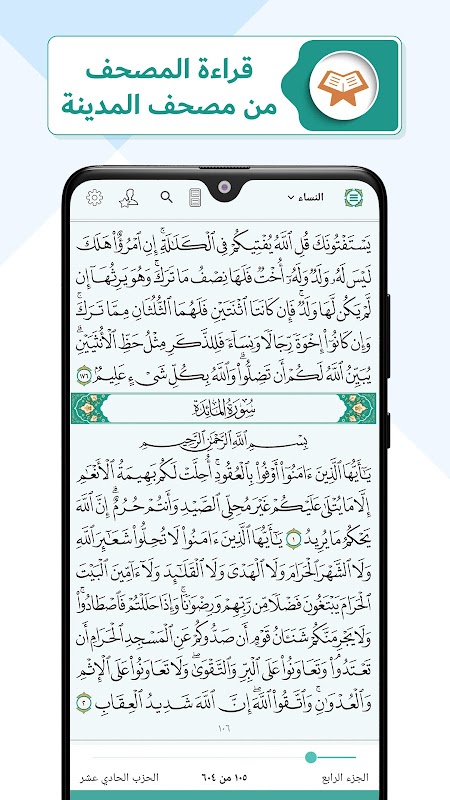 قراءة المصحف
من مصحف المدينة
النساء
يَسْتَفْتُونَكَ قُلِ ٱللَّهُ يُفْتِيكُمْ فِي ٱلْكَلَٰلَةِ ۚ إِنِ ٱمْرُؤٌا۟ هَلَكَ
لَيْسَ لَهُۥ وَلَدٌ وَلَهُۥٓ أُخْتٌ فَلَهَا نِصْفُ مَا تَرَكَ ۚ وَهُوَ يَرِثُهَآ إِن
لَّمْ يَكُن لَّهَا وَلَدٌ ۚ فَإِن كَانَتَا ٱثْنَتَيْنِ فَلَهُمَا ٱلثُّلُثَانِ مِمَّا تَرَكَ ۚ
وَإِن كَانُوٓا۟ إِخْوَةً رِّجَالًا وَنِسَآءً فَلِلذَّكَرِ مِثْلُ حَظِّ ٱلْأُنثَيَيْنِ ۗ
يُبَيِّنُ ٱللَّهُ لَكُمْ أَن تَضِلُّوا۟ ۗ وَٱللَّهُ بِكُلِّ شَىْءٍ عَلِيمٌۢ ١٧٦
سُورَةُ المَائِدَةِ
بِسْمِ ٱللَّهِ ٱلرَّحْمَٰنِ ٱلرَّحِيمِ
يَٰٓأَيُّهَا ٱلَّذِينَ ءَامَنُوٓا۟ أَوْفُوا۟ بِٱلْعُقُودِ ۚ أُحِلَّتْ لَكُم بَهِيمَةُ ٱلْأَنْعَٰمِ
إِلَّا مَا يُتْلَىٰ عَلَيْكُمْ غَيْرَ مُحِلِّى ٱلصَّيْدِ وَأَنتُمْ حُرُمٌ ۗ إِنَّ ٱللَّهَ
يَحْكُمُ مَا يُرِيدُ ١ يَٰٓأَيُّهَا ٱلَّذِينَ ءَامَنُوا۟ لَا تُحِلُّوا۟ شَعَٰٓئِرَ ٱللَّهِ
وَلَا ٱلشَّهْرَ ٱلْحَرَامَ وَلَا ٱلْهَدْىَ وَلَا ٱلْقَلَٰٓئِدَ وَلَآ ءَآمِّينَ ٱلْبَيْتَ
ٱلْحَرَامَ يَبْتَغُونَ فَضْلًا مِّن رَّبِّهِمْ وَرِضْوَٰنًا ۚ وَإِذَا حَلَلْتُمْ فَٱصْطَادُوا۟ ۚ
وَلَا يَجْرِمَنَّكُمْ شَنَـَٔانُ قَوْمٍ أَن صَدُّوكُمْ عَنِ ٱلْمَسْجِدِ ٱلْحَرَامِ أَن
تَعْتَدُوا۟ ۘ وَتَعَاوَنُوا۟ عَلَى ٱلْبِرِّ وَٱلتَّقْوَىٰ ۖ وَلَا تَعَاوَنُوا۟ عَلَى ٱلْإِثْمِ
وَٱلْعُدْوَٰنِ ۚ وَٱتَّقُوا۟ ٱللَّهَ ۖ إِنَّ ٱللَّهَ شَدِيدُ ٱلْعِقَابِ ٢
١٠٦
الجزء الرابع
١٠٥ من ٦٠٤
الحزب الحادي عشر